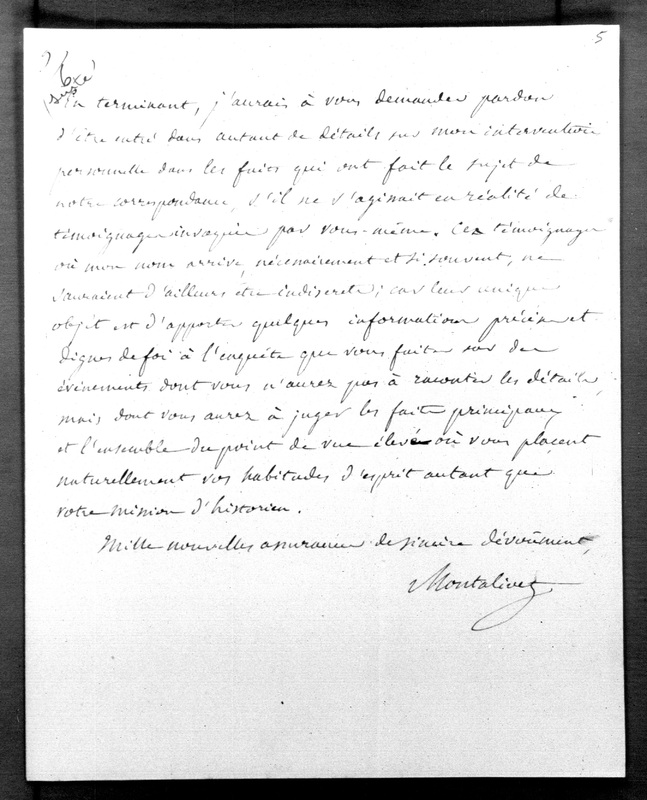 5
En terminant, j'aurais à vous demander pardon
d'être entré dans autant de détails sur mon intervention
personnelle dans les faits qui ont fait le sujet de
notre correspondance, s'il ne s'agissait en réalité de
témoignages invoqués par vous-même. Ces témoignages
où mon nom arrive nécessairement et si souvent, ne
sauraient d'ailleurs être indiscrets; car leur unique
objet est d'apporter quelques informations précises et
dignes de foi à l'enquête que vous faites sur des
évènements dont vous n'aurez pas à raconter les détails,
mais dont vous aurez à juger les faits principaux
et l'ensemble du point de vue élevé où vous placent
naturellement vos habitudes d'esprit autant que
votre mission d'historien.
Mille nouvelles assurances de sincère dévoûment,
Montalivet